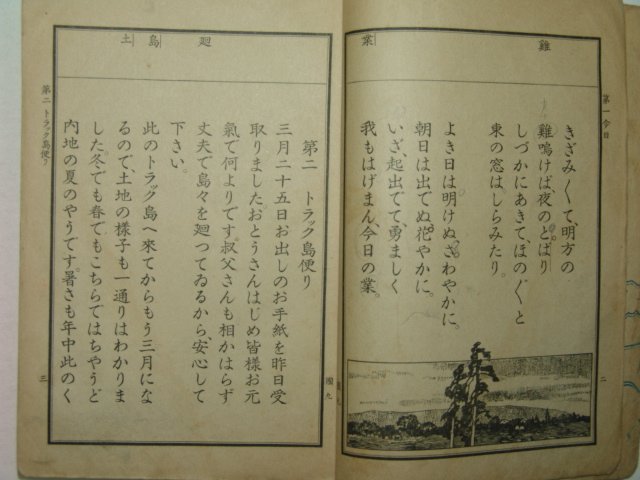 雞
業
第一 今日
きざみ〱て、明方の
雞鳴けば、夜のとばり
しづかにあきて、ほの〲と
東の窓は、しらみたり。
よき日は明けぬ、さわやかに。
朝日は出でぬ、花やかに。
いざ、起出でて勇ましく
我もはげまん、今日の業。
二
廻
島
土
第二 トラック島便り
三月二十五日お出しのお手紙を昨日受
取りました。おとうさんはじめ皆様お元
氣で何よりです。叔父さんも相かはらず
丈夫で島々を廻つてゐるから、安心して
下さい。
此のトラック島へ來てからもう三月にな
るので、土地の樣子も一通りはわかりま
した。冬でも春でもこちらではちやうど
内地の夏のやうです。暑さも年中此のく
第二 トラック島便り
三
國九